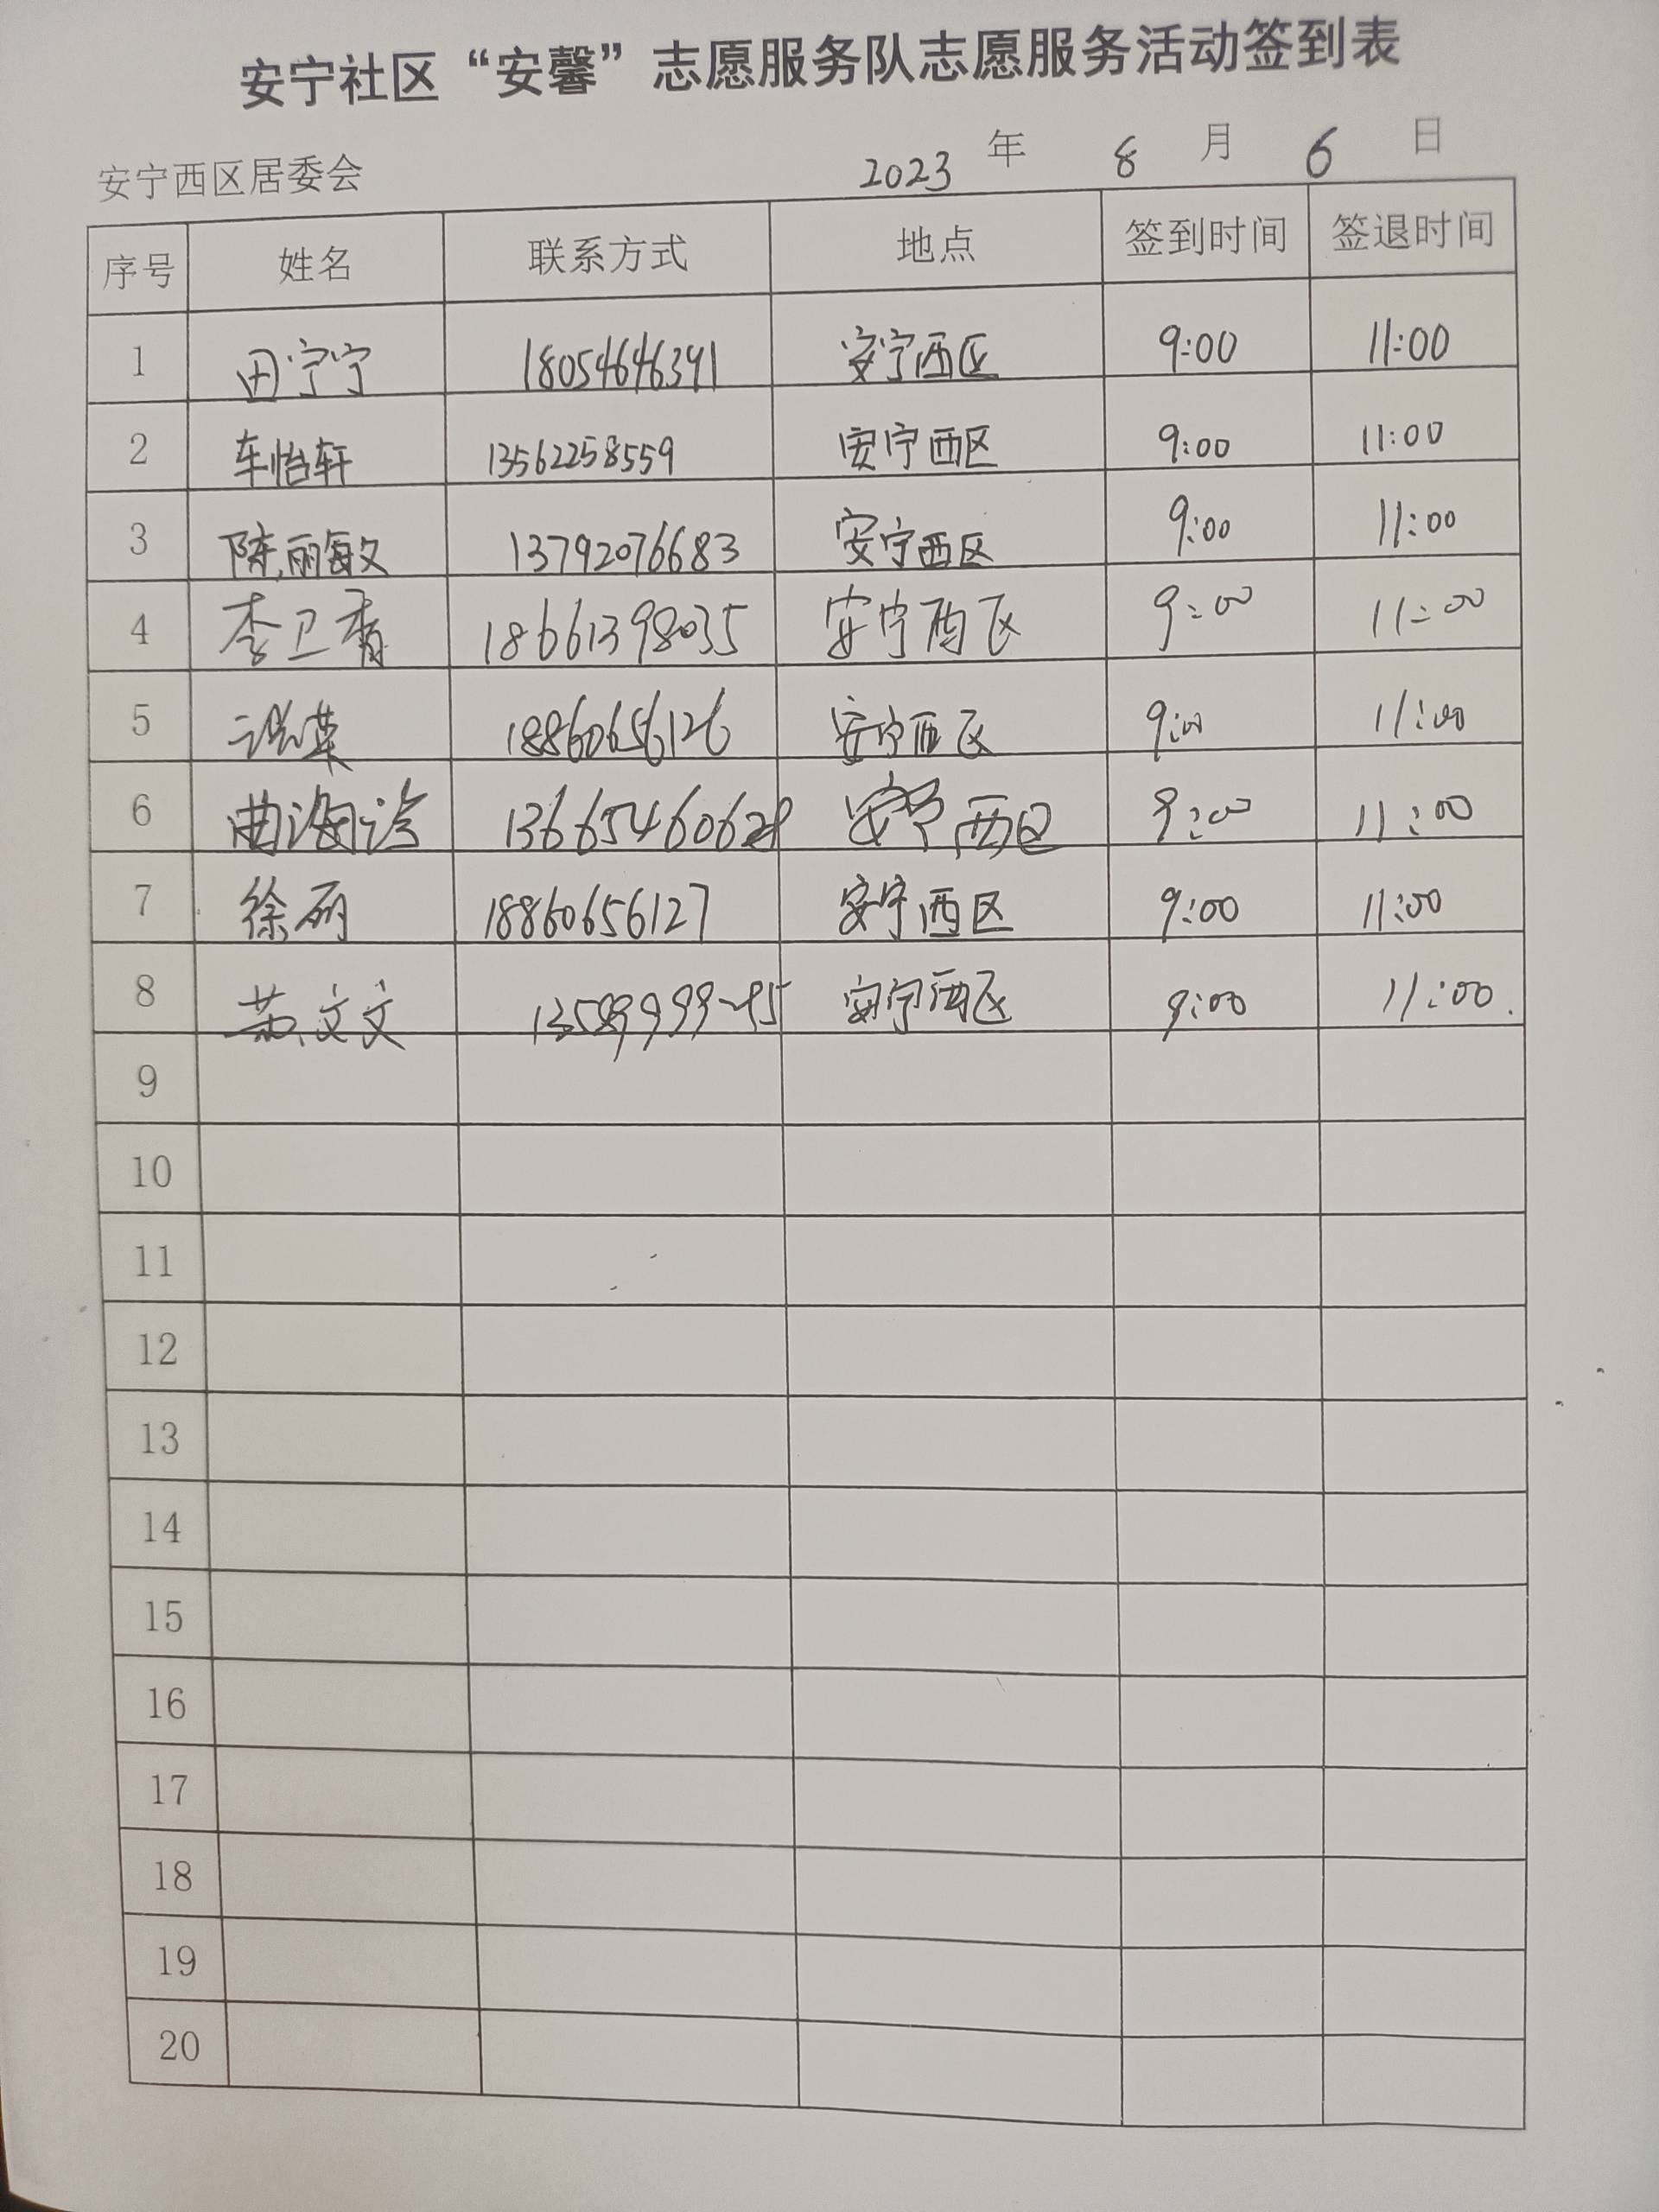 安宁社区“安馨”志愿服务队志愿服务活动签到表
安宁西区居委会 2023 年 8 月 6 日
序号 姓名 联系方式 地点 签到时间 签退时间
1 田宁宁 18054646391 安宁西区 9:00 11:00
2 车怡轩 13562258559 安宁西区 9:00 11:00
3 陈丽敏 13792076683 安宁西区 9:00 11:00
4 李卫香 18661398035 安宁西区 9:00 11:00
5 18860656126 安宁西区 9:00 11:00
6 曲海 安宁西区 9:00 11:00
7 徐丽 18860656127 安宁西区 9:00 11:00
8 苏文文 安宁西区 9:00 11:00
9
10
11
12
13
14
15
16
17
18
19
20